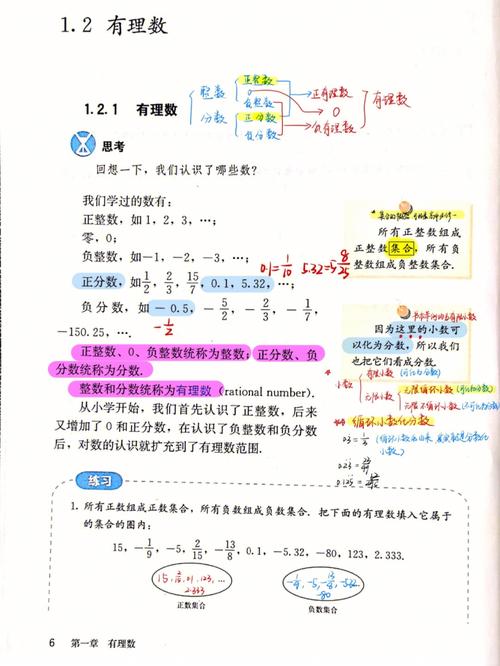 1.2 有理数
1.2.1 有理数
整数
分数
正整数
0
负整数
正分数
负分数
正有理数
0
负有理数
有理数
思考
回想一下，我们认识了哪些数？
我们学过的数有：
正整数，如1，2，3，…；
零，0；
负整数，如-1，-2，-3，…；
正分数，如1/2，2/3，15/7，0.1，5.32，…；
0.1=1/10 5.32=5 8/25
负分数，如-0.5，-5/2，-2/3，-1/7，
-150.25，….
-1/2
正整数、0、负整数统称为整数；正分数、负
分数统称为分数.
整数和分数统称为有理数(rational number).
从小学开始，我们首先认识了正整数，后来
又增加了0和正分数，在认识了负整数和负分数
后，对数的认识就扩充到了有理数范围.
所有正整数组成
正整数集合，所有负
整数组成负整数集合.
因为这里的小数可
以化为分数，所以我们
也把它们看成分数.
小数
有限小数（可化为分数）
无限小数
无限循环小数（可化分数）
无限不循环小数（不可化为分数）
循环小数化分数
练习
1. 所有正数组成正数集合，所有负数组成负数集合. 把下面的有理数填入它属于
的集合的圈内：
15，-1/9，-5，2/15，-13/8，0.1，-5.32，-80，123，2.333.
15, 2/15, 0.1, 123, …
2.333
正数集合
-1/9, -5, -13/8, -5.32
-80
负数集合
6 第一章 有理数